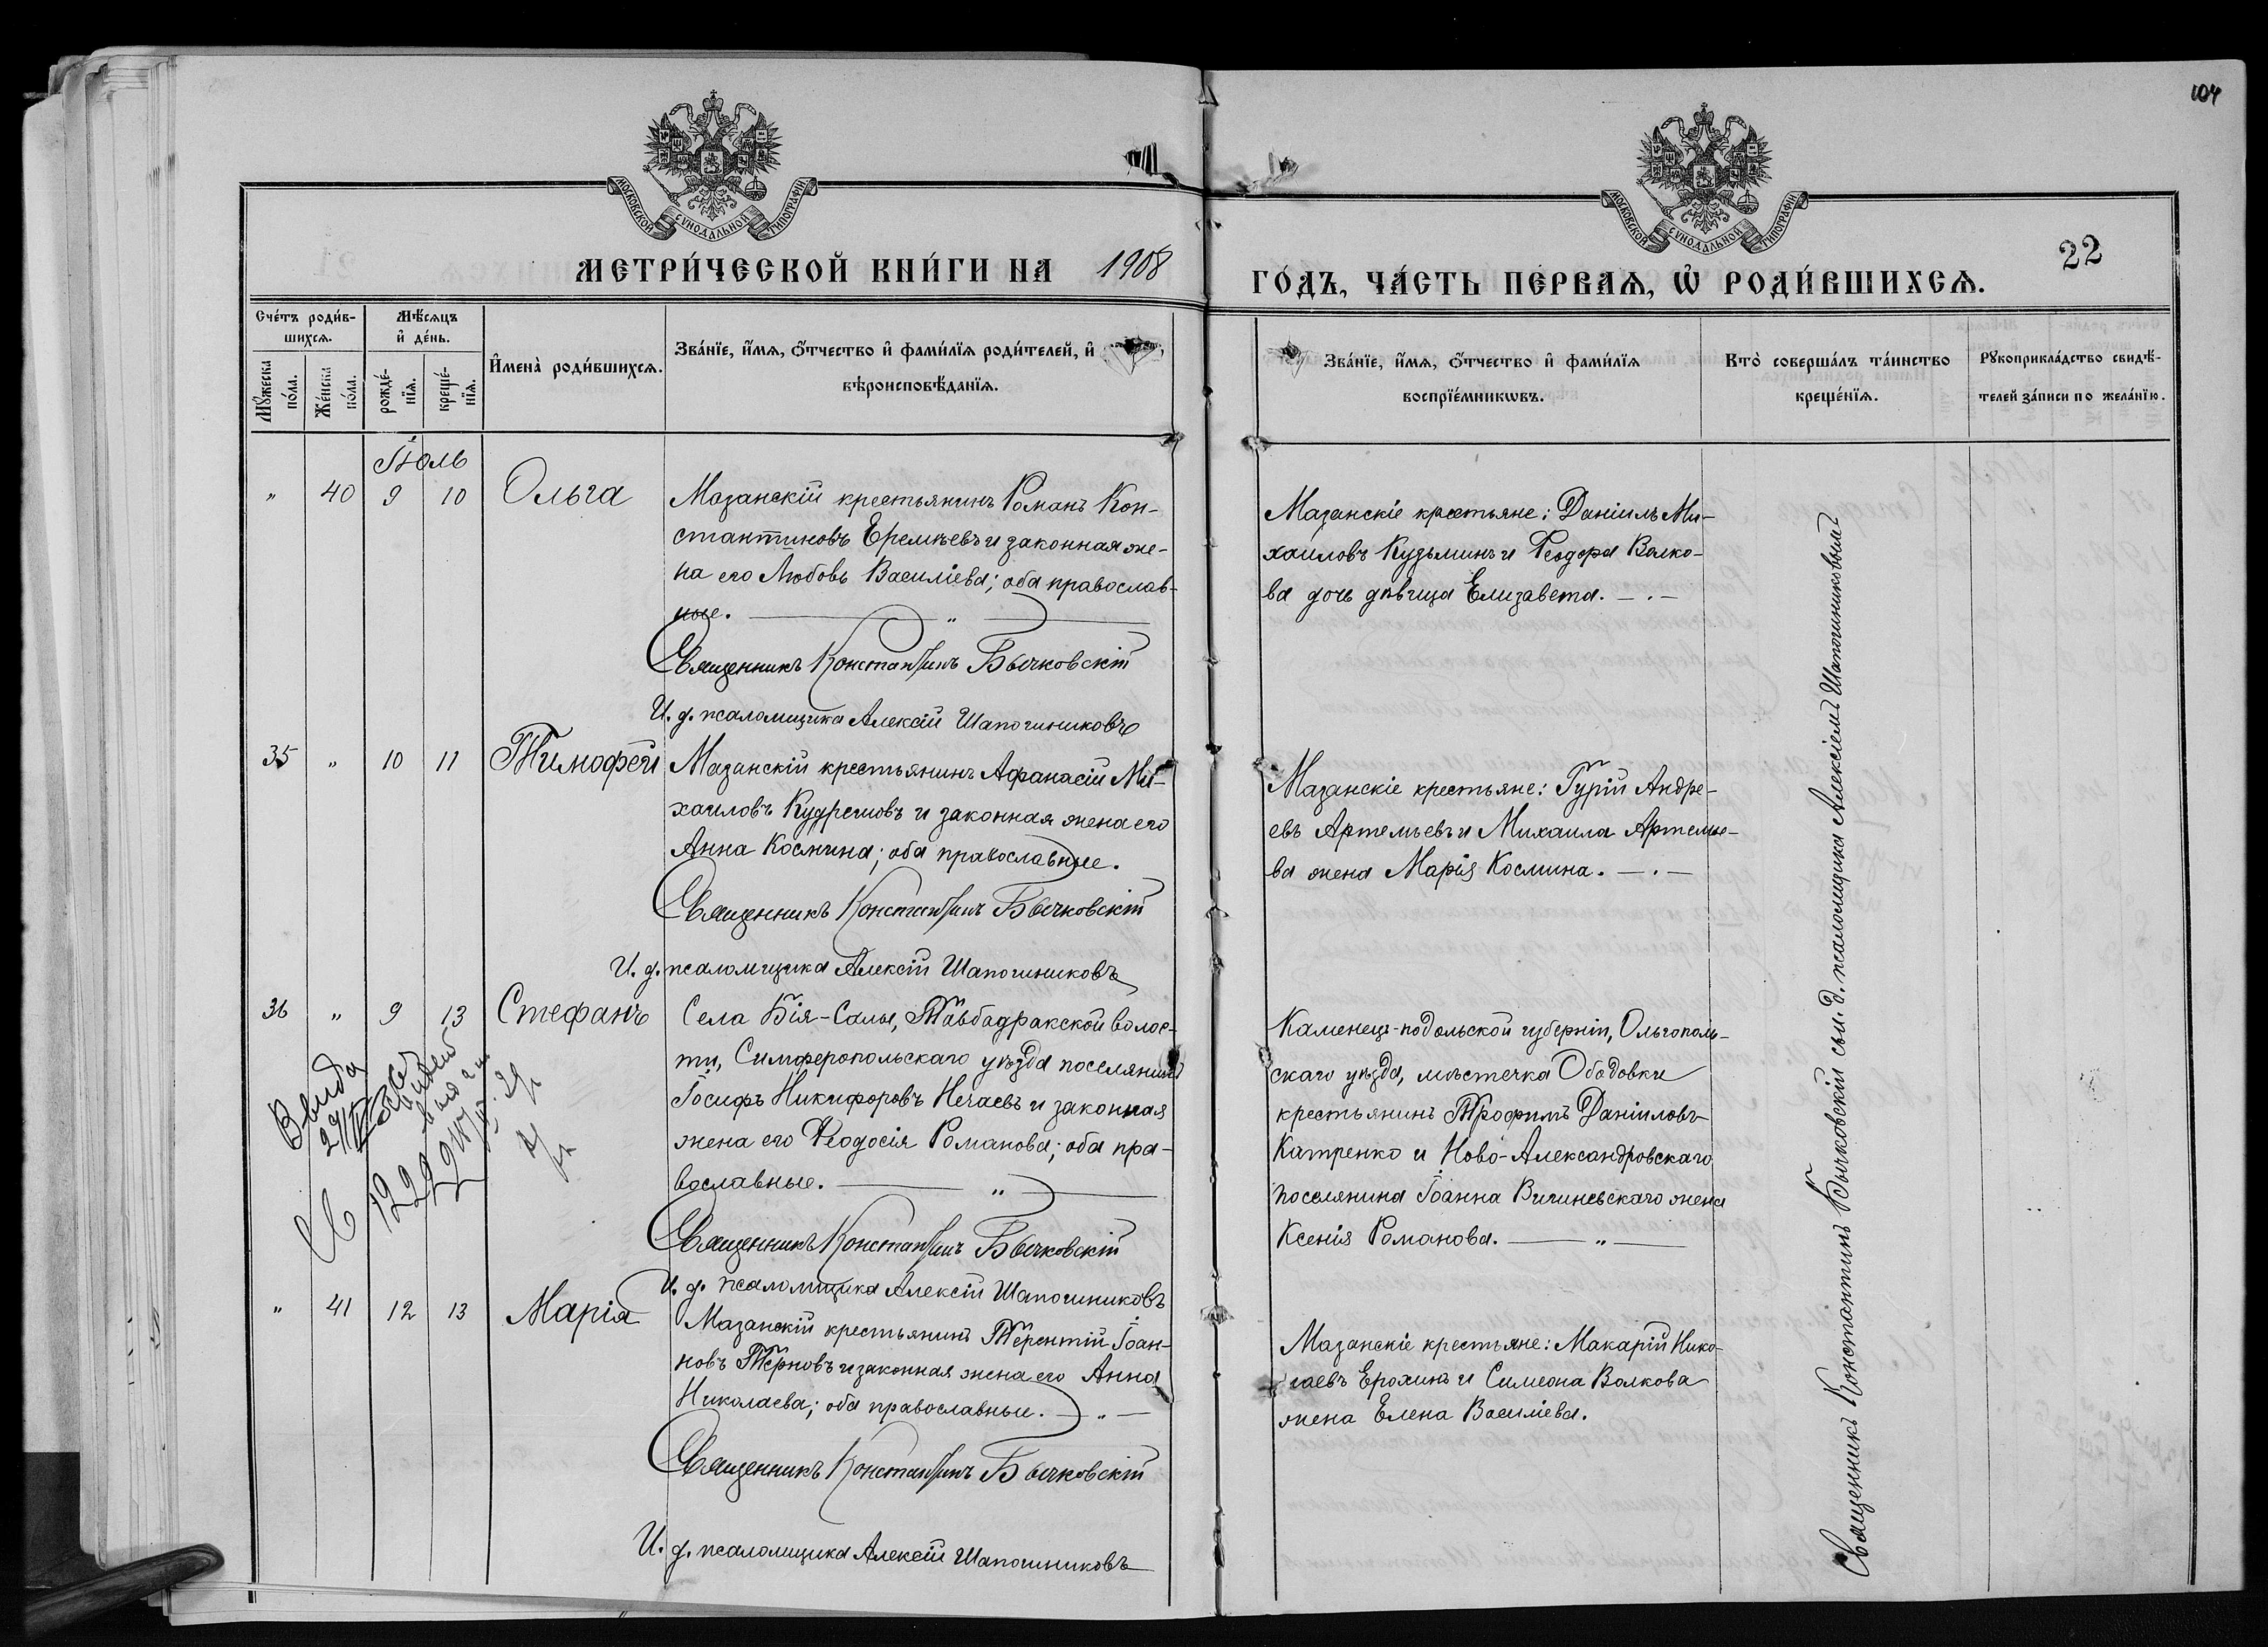 104
МОСКОВСКОЙ СѴНОДАЛЬНОЙ ТИПОГРАФІИ
МОСКОВСКОЙ СѴНОДАЛЬНОЙ ТИПОГРАФІИ
22
МЕТРИ́ЧЕСКОЙ КНИ́ГИ НА 1908
ГО́ДЪ, ЧА́СТЬ ПЕ́РВАѦ, Ѡ҆ РОДИ́ВШИХСѦ.
Сче́тъ роди́в-
шихсѧ.
Мꙋ́жеска по́ла.
Же́нска по́ла.
Мѣ́сѧцъ
и҆ де́нь.
рожде́-
нїѧ.
креще́-
нїѧ.
И҆мена̀ роди́вшихсѧ.
Зва́нїе, и҆́мѧ, ѻ҆́тчество и҆ фами́лїѧ роди́телей, и҆
вѣроисповѣ́данїѧ.
Зва́нїе, и҆́мѧ, ѻ҆́тчество и҆ фами́лїѧ
воспрїе́мникѡвъ.
Кто̀ соверша́лъ та́инство
креще́нїѧ.
Рꙋкоприкла́дство свидѣ́-
телей за́писи по жела́нїю.
Іюль
" 40 9 10 Ольга
Мазанскій крестьянинъ Романъ Кон-
стантиновъ Еремѣевъ и законная же-
на его Любовь Василіева; оба православ-
ные. — " —
Священникъ Константинъ Бычковскій
И. д. псаломщика Алексій Шапошниковъ
Мазанскіе крестьяне: Даніилъ Ми-
хаиловъ Кузьминъ и Ѳеодора Волко-
ва дочь дѣвица Елизавета. — . —
35 " 10 11 Тимоѳей
Мазанскій крестьянинъ Афанасій Ми-
хаиловъ Кудрешовъ и законная жена его
Анна Космина; оба православные.
Священникъ Константинъ Бычковскій
И. д. псаломщика Алексій Шапошниковъ
Мазанскіе крестьяне: Гурій Андре-
евъ Артемьевъ и Михаила Артемье-
ва жена Марія Космина. — . —
36 " 9 13 Стефанъ
Села Бія-Салы, Тавбадракской волос-
ти, Симферопольскаго уѣзда поселянинъ
Іосифъ Никифоровъ Нечаевъ и законная
жена его Ѳеодосія Романова; оба пра-
вославные. — " —
Священникъ Константинъ Бычковскій
И. д. псаломщика Алексій Шапошниковъ
Каменецъ-подольской губерніи, Ольгополь-
скаго уѣзда, мѣстечка Ободовки
крестьянинъ Трофимъ Даніиловъ
Катренко и Ново-Александровскаго
поселянина Іоанна Вишневскаго жена
Ксенія Романова. — " —
" 41 12 13 Марія
Мазанскій крестьянинъ Терентій Іоан-
новъ Терновъ и законная жена его Анна
Николаева; оба православные. — " —
Священникъ Константинъ Бычковскій
И. д. псаломщика Алексій Шапошниковъ
Мазанскіе крестьяне: Макарій Нико-
лаевъ Ерохинъ и Симеона Волкова
жена Елена Василіева.
Священникъ Константинъ Бычковскій съ и. д. псаломщика Алексіемъ Шапошниковымъ